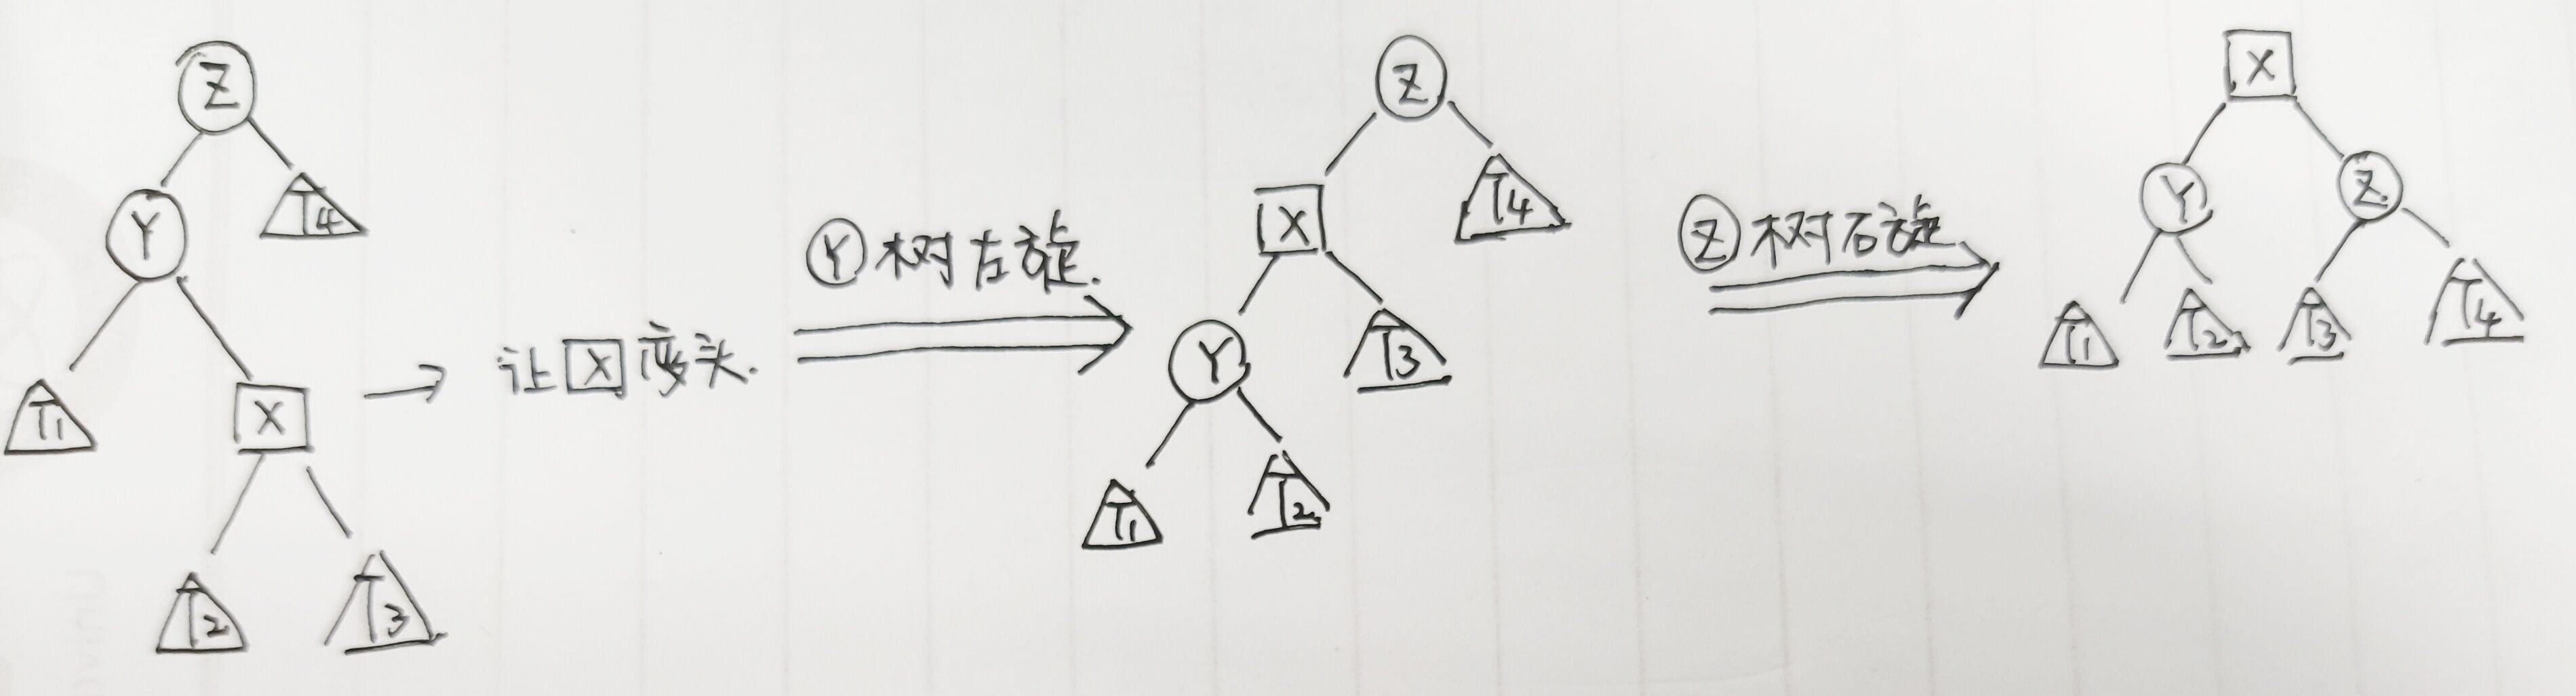 Z
Y
T4
T1
X
T2
T3
让X变头.
Y树左旋.
Z
X
T4
Y
T3
T1
T2
Z树右旋
X
Y
Z
T1
T2
T3
T4